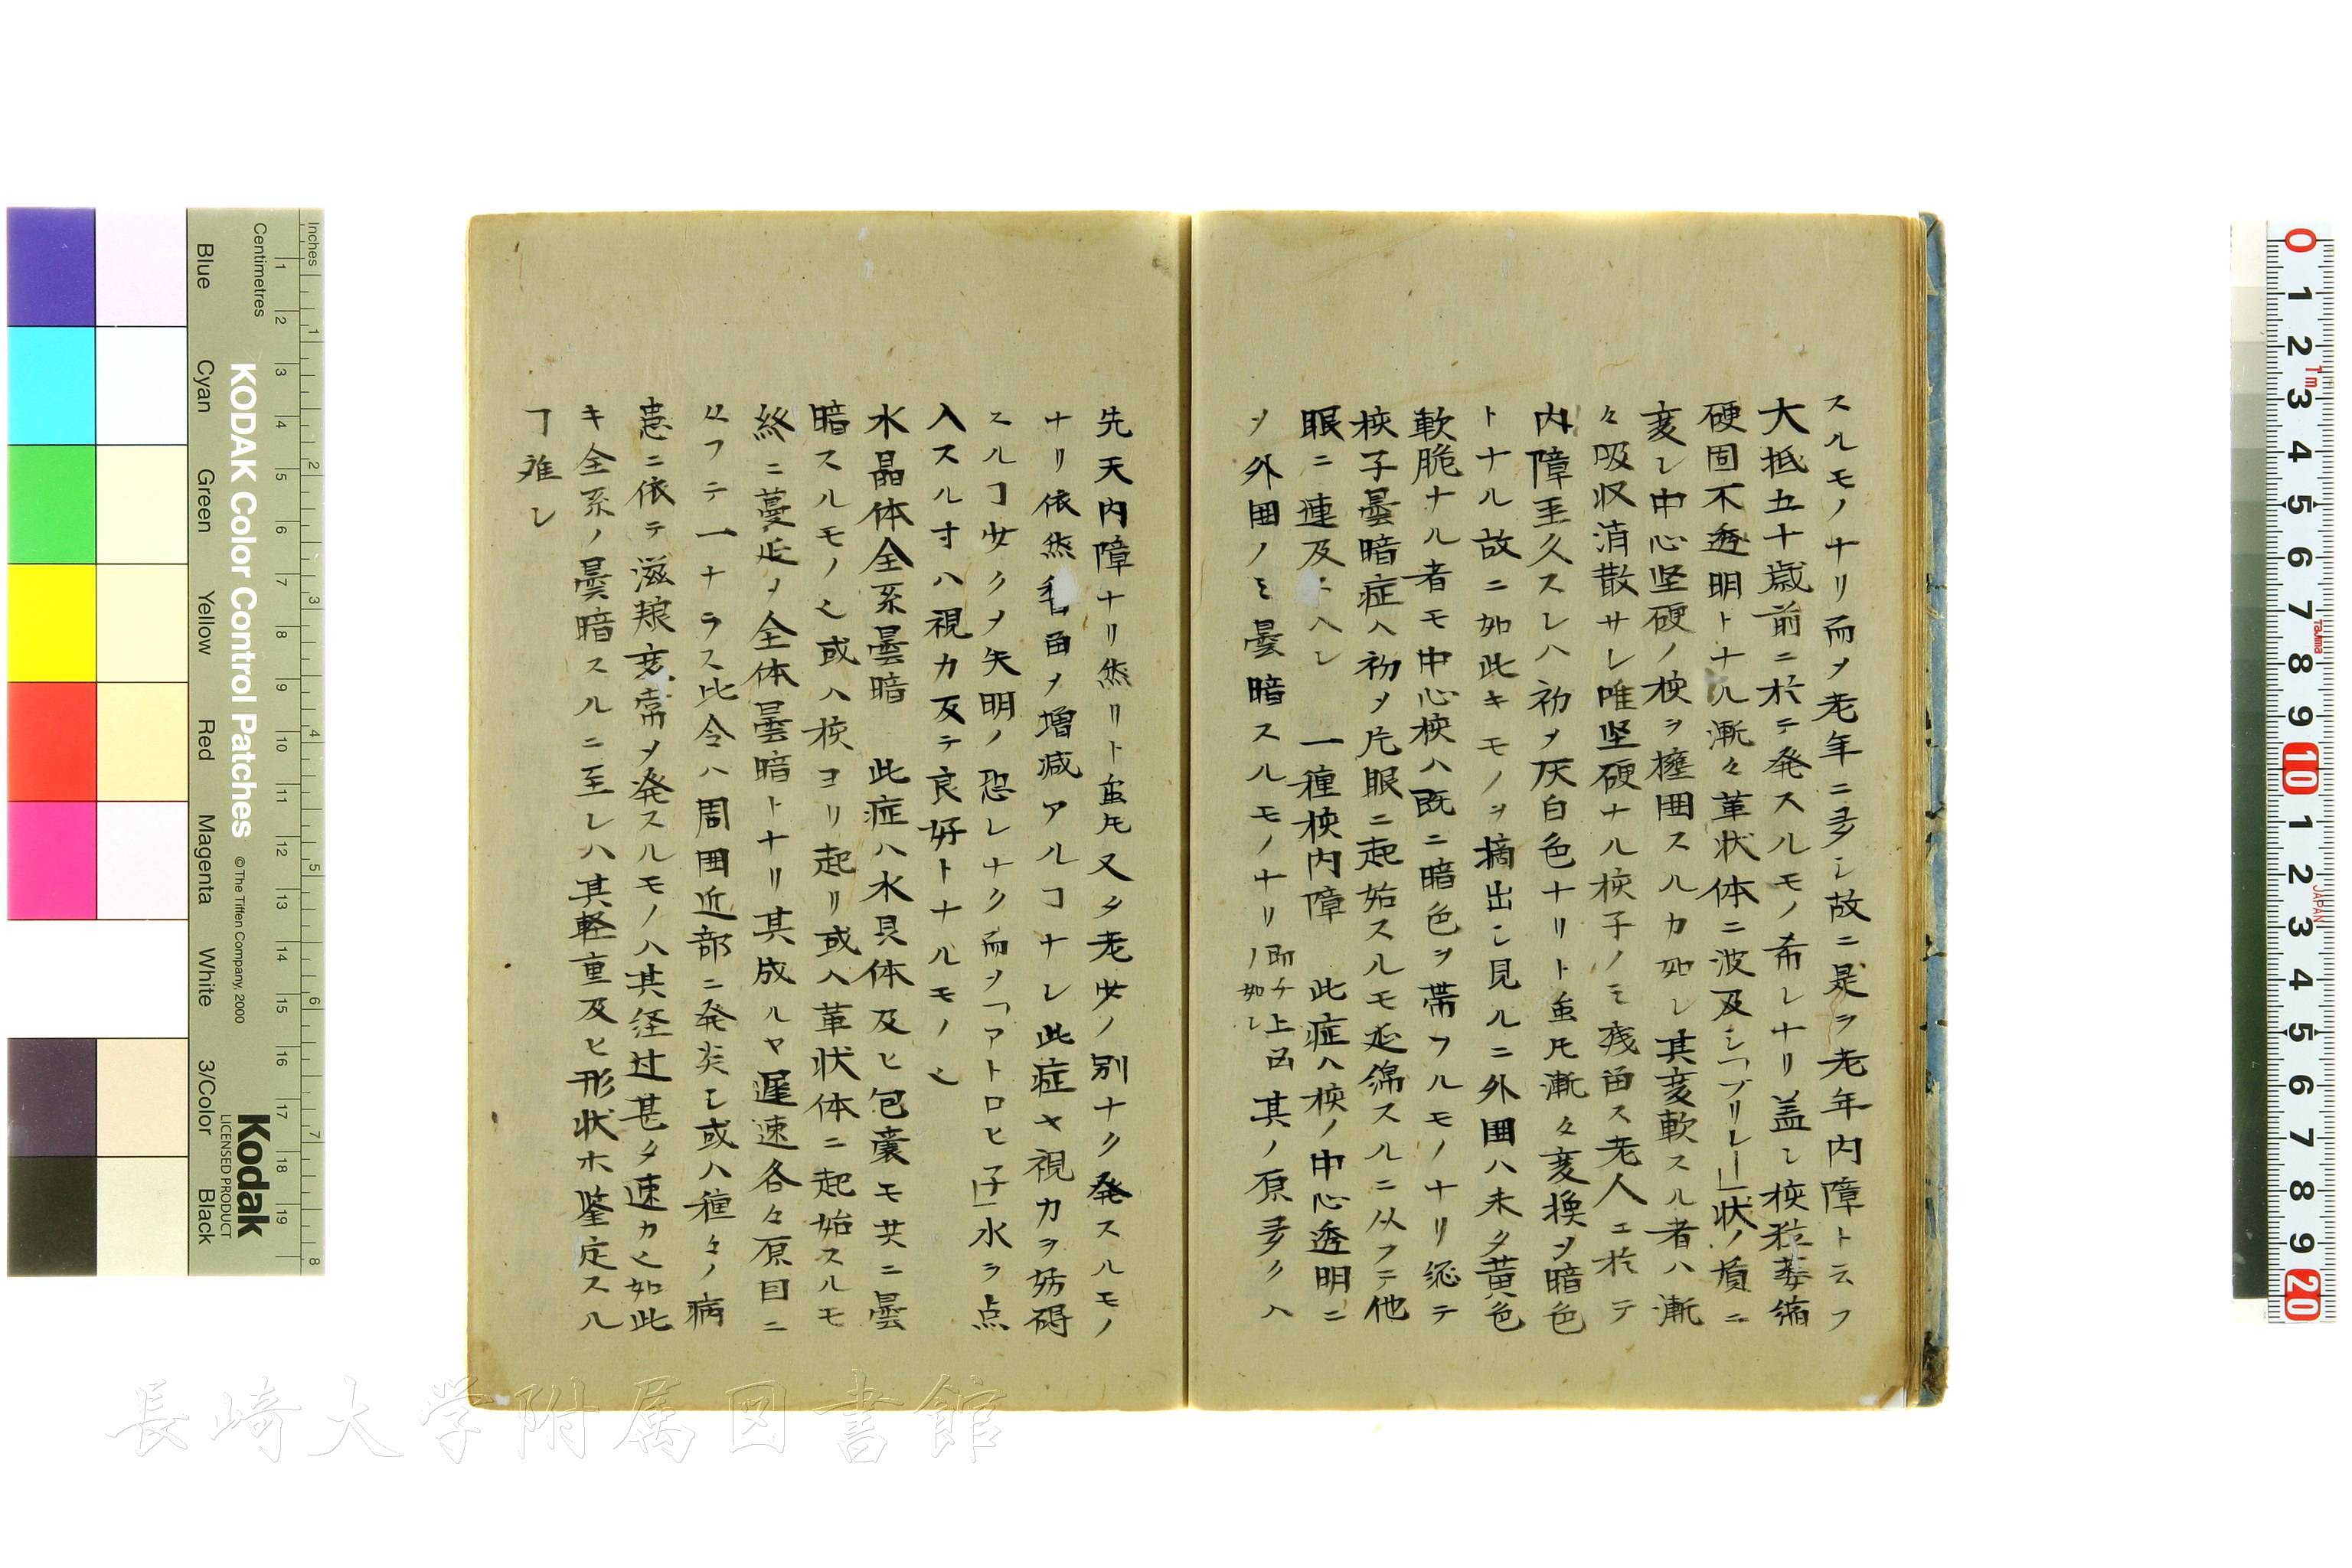 スルモノナリ而ヲ老年ニ多シ故ニ是ヲ老年内障ト云フ
大抵五十歳前ニ於テ発スルモノ希レナリ蓋シ核粒萎縮
硬固不透明トナル漸々革状体ニ波及シ「ブリレー」状ノ質ニ
変シ中心坚硬ノ核ヲ擁囲スルカ如シ其変軟スル者ハ漸
々吸収消散サレ唯坚硬ナル核子ノミ残畄ス老人ニ於テ
内障至久スレハ初ヲ灰白色ナリト虽𪜈漸々変換ヲ暗色
トナル故ニ如此キモノヲ摘出シ見ルニ外囲ハ未タ黄色
軟脆ナル者モ中心核ハ既ニ暗色ヲ帯フルモノナリ総テ
核子曇暗症ハ初メ片眼ニ起始スルモ延綿スルニ从フテ他
眼ニ連及スヘシ　一種核内障　此症ハ核ノ中心透明ニ
ヲ外囲ノミ曇暗スルモノナリ即チ上図ノ如シ其ノ原多クハ
先天内障ナリ然リト虽𪜈又タ老少ノ別ナク発スルモノ
ナリ依然毛畄メ増減アルヿナシ此症ヤ視力ヲ妨碍
スルヿ少クヲ失明ノ恐レナク而ヲ「アトロヒ子」水ヲ点
入スル寸ハ視力反テ良好トナルモノ也
水晶体全系曇暗　此症ハ水晶体及ヒ包嚢モ共ニ曇
暗スルモノ也或ハ核ヨリ起リ或ハ革状体ニ起始スルモ
終ニ蔓延ヲ全体曇暗トナリ其成ルヤ遅速各々原因ニ
从フテ一ナラス此令ハ周囲近部ニ発炎シ或ハ種々ノ病
患ニ依テ滋粮変常ヲ発スルモノハ其経过甚タ速カ也如此
キ全系ノ曇暗スルニ至レハ其軽重及ヒ形状ホ鉴定スル
ヿ难シ
Inches
Centimetres
KODAK Color Control Patches
©The Tiffen Company, 2000
Kodak
LICENSED PRODUCT
Blue
Cyan
Green
Yellow
Red
Magenta
White
3/Color
Black
1 2 3 4 5 6 7 8 9 10 11 12 13 14 15 16 17 18 19
1 2 3 4 5 6 7 8
0 1 2 3 4 5 6 7 8 9 10 1 2 3 4 5 6 7 8 9 20
1m
Tajima
JAPAN
長崎大学附属図書館